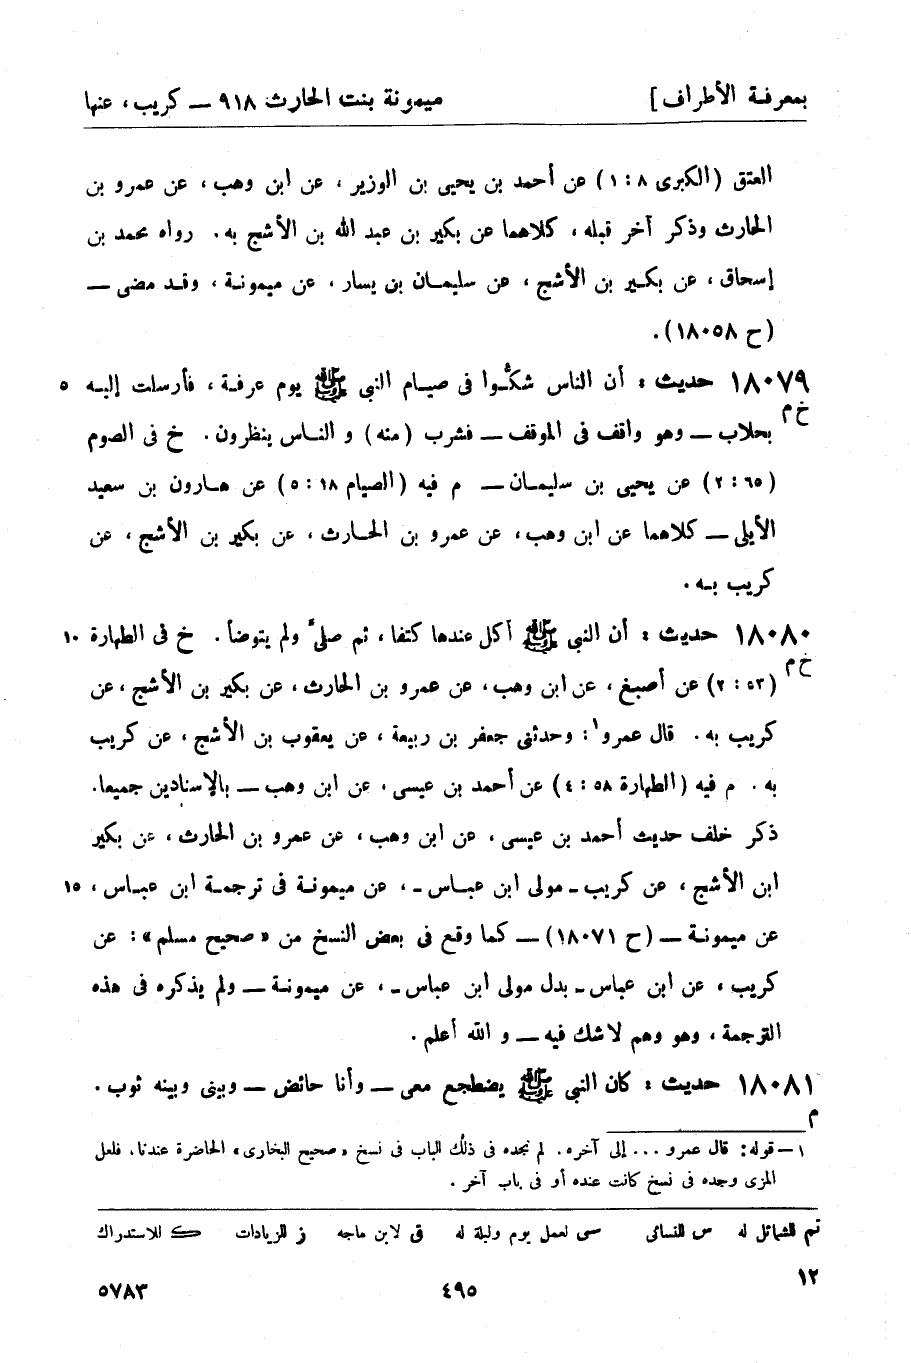 بمعرفة الأطراف] ميمونة بنت الحارث ٩١٨ — كريب، عنها
العتق (الكبرى ٨ : ١) عن أحمد بن يحيى بن الوزير، عن ابن وهب، عن عمرو بن
الحارث وذكر آخر قبله، كلاهما عن بكير بن عبد الله بن الأشج به. رواه محمد بن
إسحاق، عن بكير بن الأشج، عن سليمان بن يسار، عن ميمونة، وقد مضى —
(ح ١٨٠٥٨).
١٨٠٧٩ حديث : أن الناس شكُّوا فى صيام النبى ﷺ يوم عرفة، فأرسلت إليه ٥
خ م
بحلاب — وهو واقف فى الموقف — فشرب (منه) و الناس ينظرون. خ فى الصوم
(٦٥ : ٢) عن يحيى بن سليمان — م فيه (الصيام ١٨ : ٥) عن هارون بن سعيد
الأيلى — كلاهما عن ابن وهب، عن عمرو بن الحارث، عن بكير بن الأشج، عن
كريب به.
١٨٠٨٠ حديث : أن النبى ﷺ أكل عندها كتفا، ثم صلى ولم يتوضأ. خ فى الطهارة ١٠
خ م
(٥٣ : ٢) عن أصبغ، عن ابن وهب، عن عمرو بن الحارث، عن بكير بن الأشج، عن
كريب به. قال عمرو١: وحدثنى جعفر بن ربيعة، عن يعقوب بن الأشج، عن كريب
به. م فيه (الطهارة ٥٨ : ٤) عن أحمد بن عيسى، عن ابن وهب — بالإسنادين جميعا.
ذكر خلف حديث أحمد بن عيسى، عن ابن وهب، عن عمرو بن الحارث، عن بكير
ابن الأشج، عن كريب ـ مولى ابن عباس ـ، عن ميمونة فى ترجمة ابن عباس، ١٥
عن ميمونة — (ح ١٨٠٧١) — كما وقع فى بعض النسخ من «صحيح مسلم»: عن
كريب، عن ابن عباس ـ بدل مولى ابن عباس ـ، عن ميمونة — ولم يذكره فى هذه
الترجمة، وهو وهم لاشك فيه — و الله أعلم.
١٨٠٨١ حديث : كان النبى ﷺ يضطجع معى — وأنا حائض — وبينى وبينه ثوب.
م
١ — قوله: قال عمرو ... إلى آخره. لم نجده فى ذلك الباب فى نسخ «صحيح البخارى» الحاضرة عندنا، فلعل
المزى وجده فى نسخ كانت عنده أو فى باب آخر.
تم للشمائل له س للنسائى سى لعمل يوم وليلة له ق لابن ماجه ز للزيادات ك للاستدراك
١٢
٤٩٥ ٥٧٨٣